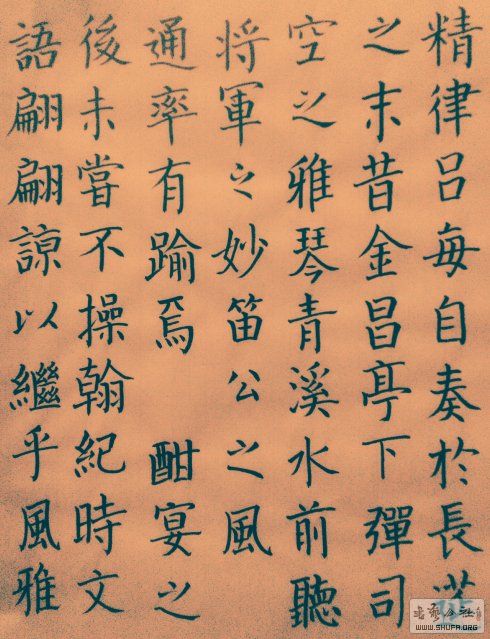 精律呂每自奏於長
之末昔金昌亭下彈司
空之雅琴青溪水前聽
将軍之妙笛公之風
通率有踰焉 酣宴之
後未嘗不操翰紀時文
語翩翩諒以繼乎風雅
WWW.SHUFA.ORG